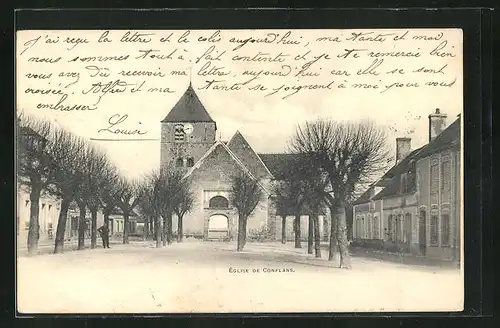 j'ai reçu la lettre et le colis aujourd'hui, ma tante et moi
nous sommes tout à fait contente et je te remercie bien
vous avez dû recevoir ma lettre, aujourd'hui car elle se sont
croisée. ma tante se joignent à moi pour vous
embrasser
Louise
ÉGLISE DE CONFLANS.